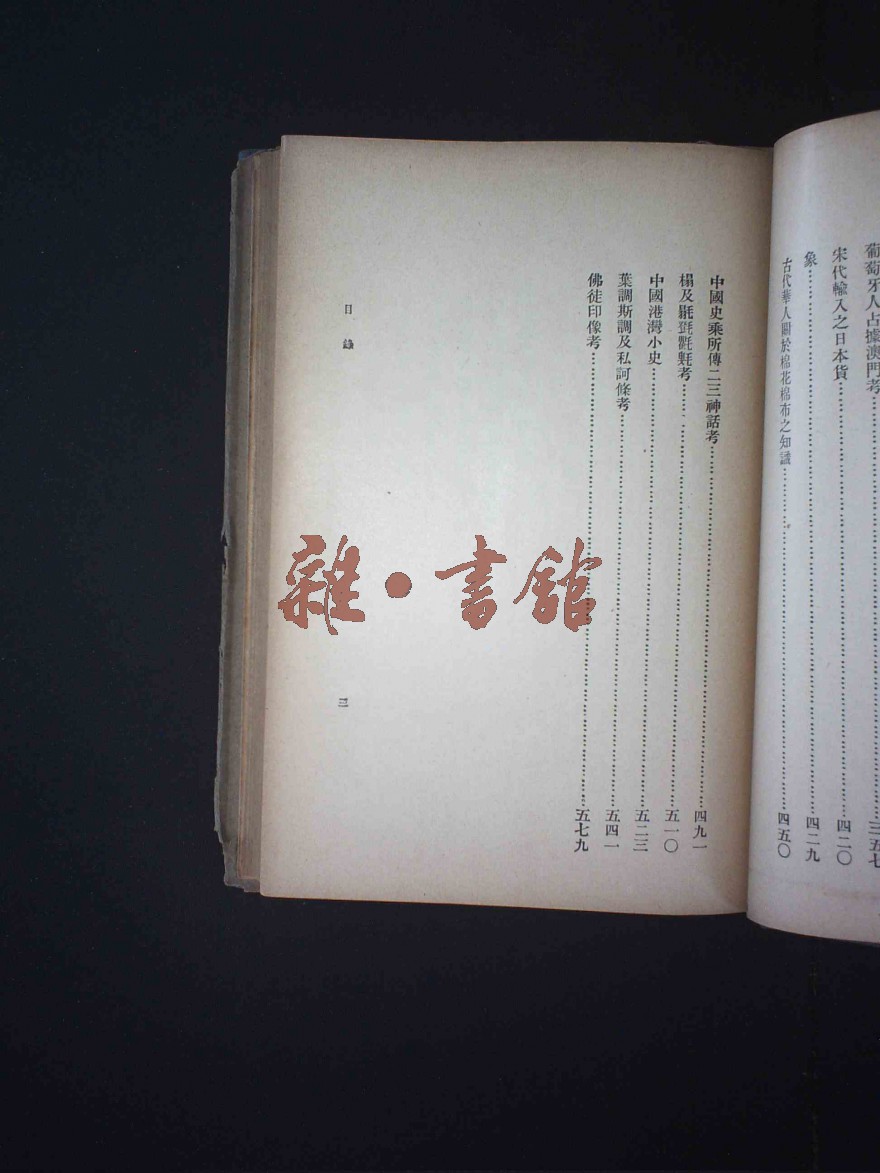 葡萄牙人占據澳門考……三五七
宋代輸入之日本貨……四二〇
象……四二九
古代華人關於棉花棉布之知識……四五〇
中國史乘所傳二三神話考……四九一
榻及毾㲪氍毹考……五一〇
中國港灣小史……五二三
葉調斯調及私訶條考……五四一
佛徒印像考……五七九
目錄
三
雜·書館